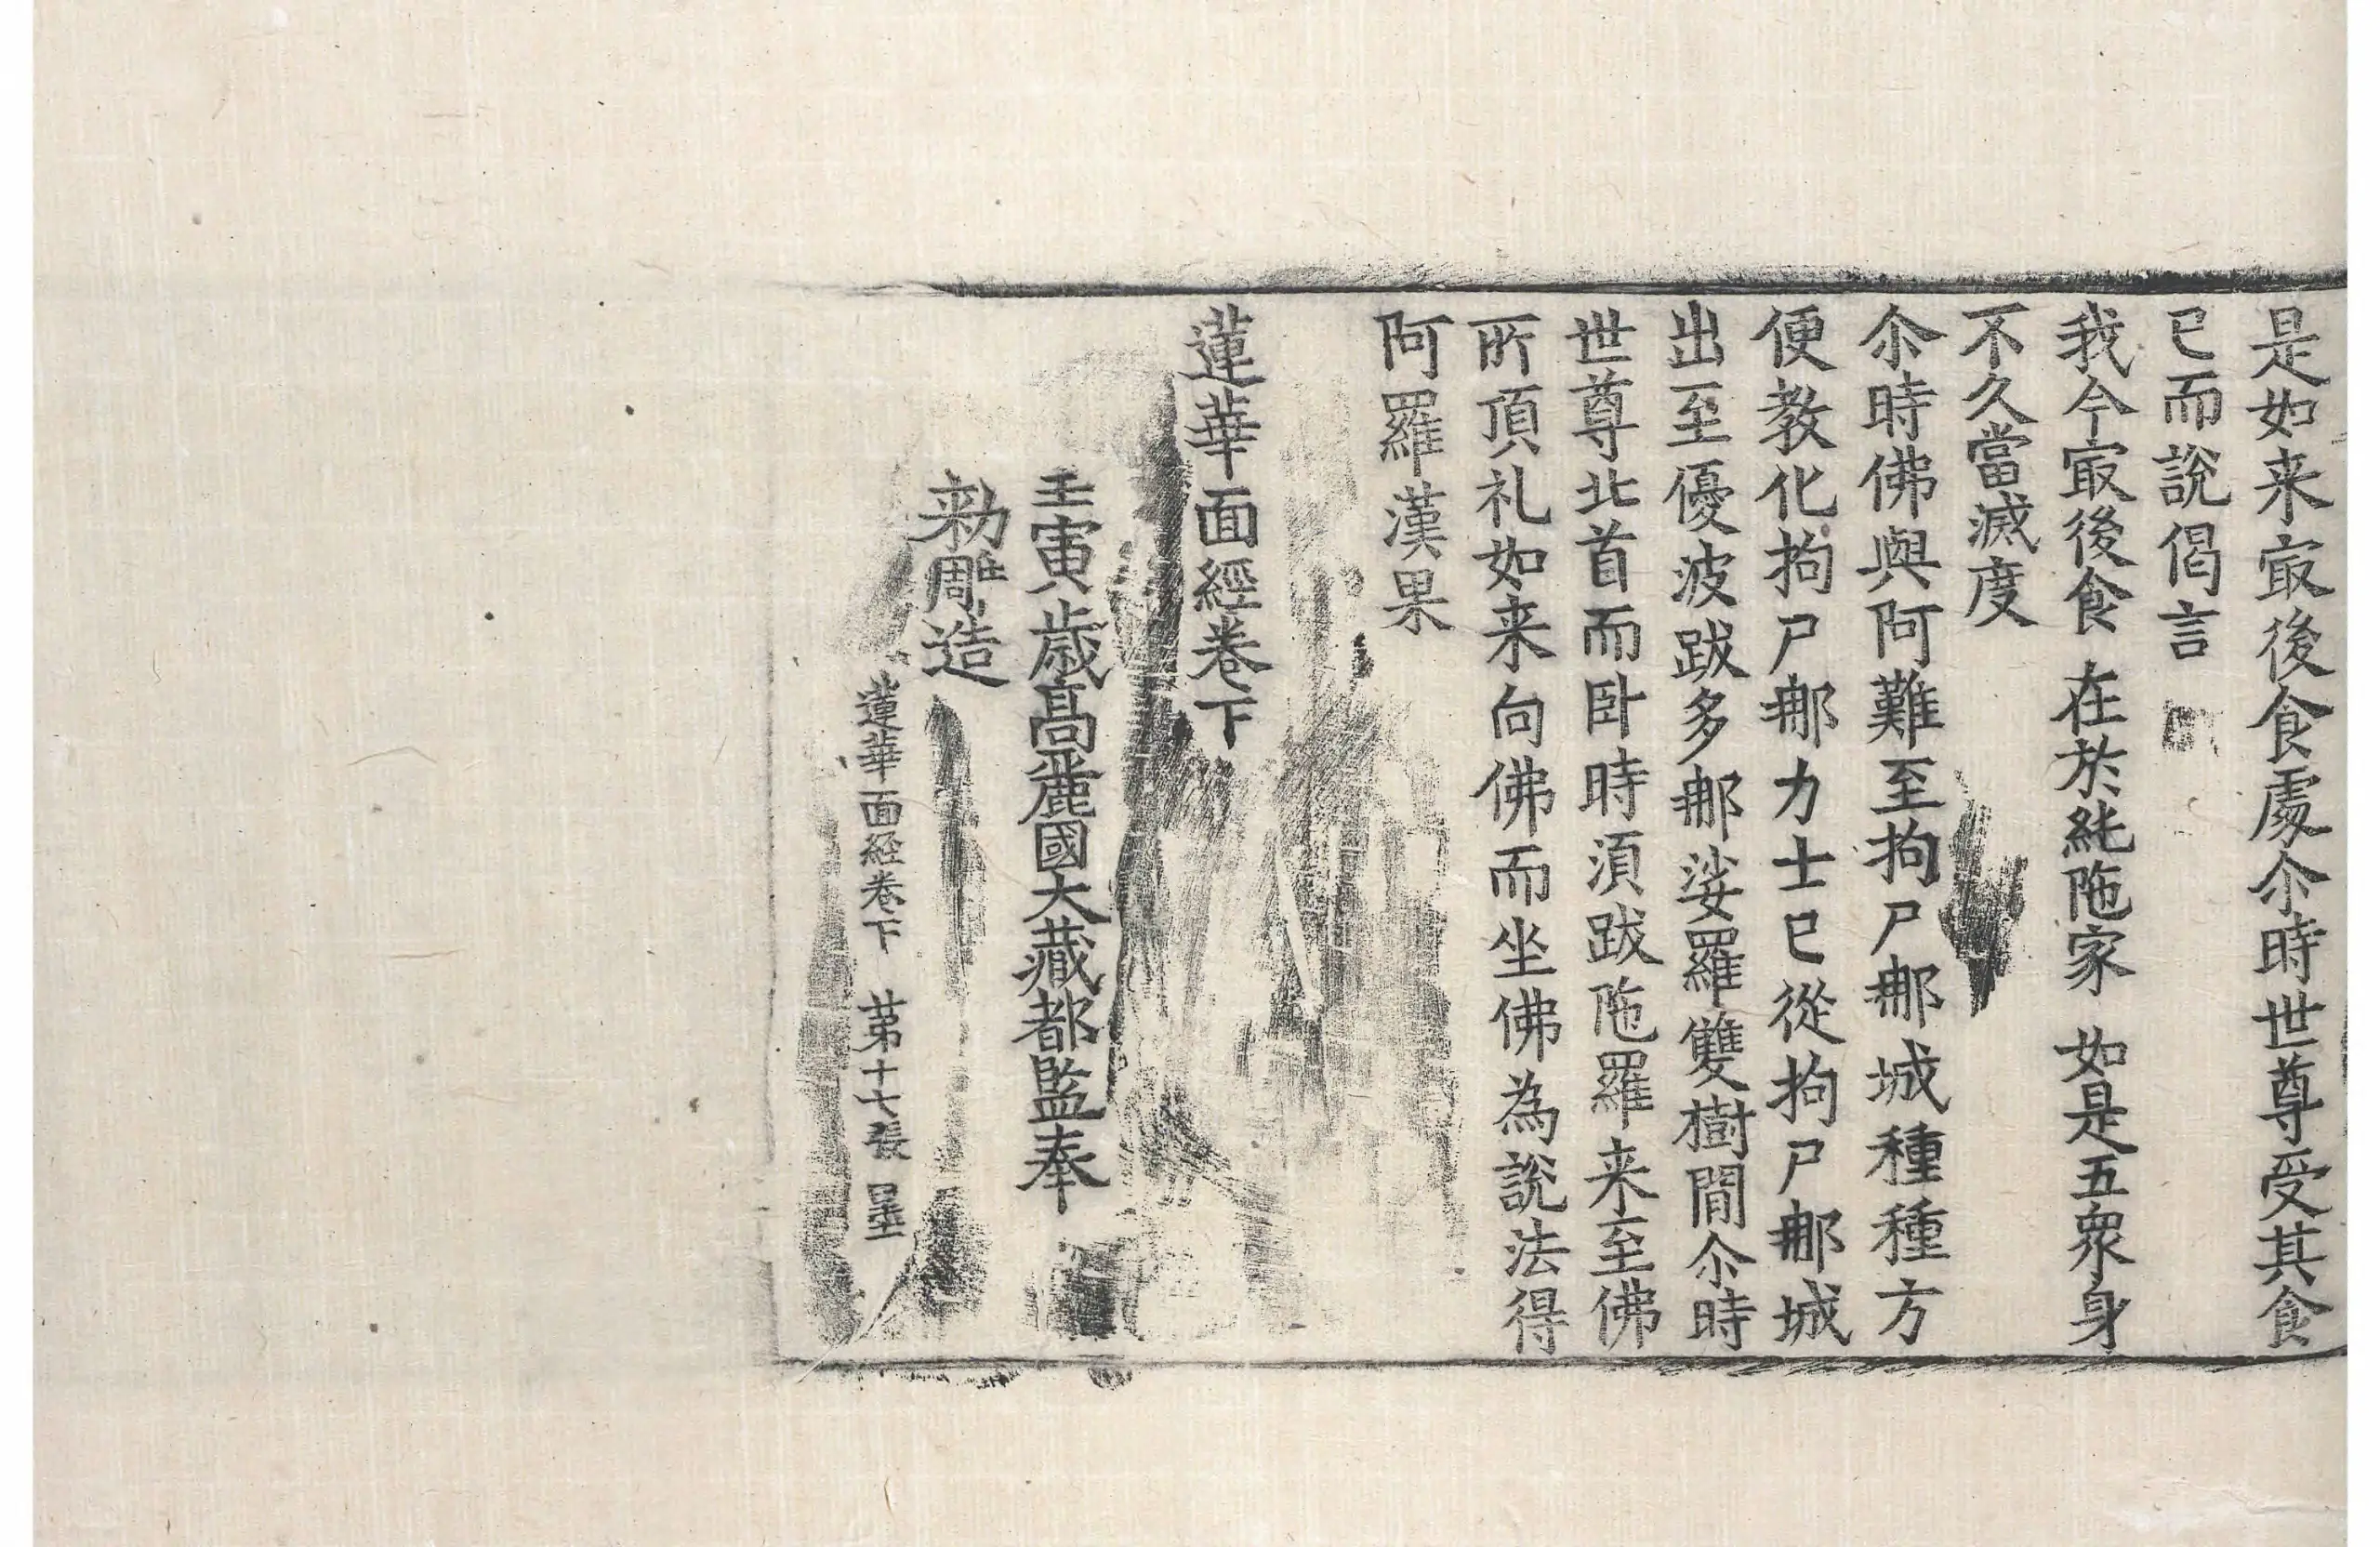 是如来㝡後食處尒時世尊受其食
已而說偈言
我今㝡後食 在於純陁家 如是五眾身
不久當滅度
尒時佛與阿難至拘尸郍城種種方
便教化拘尸郍力士已從拘尸郍城
出至優波跋多郍娑羅雙樹間尒時
世尊北首而卧時湏跋陁羅来至佛
所頂礼如来向佛而坐佛為說法得
阿羅漢果
蓮華面經卷下
壬寅歲高麗國大藏都監奉
勑雕造
蓮華面経卷下 苐十七張 墨